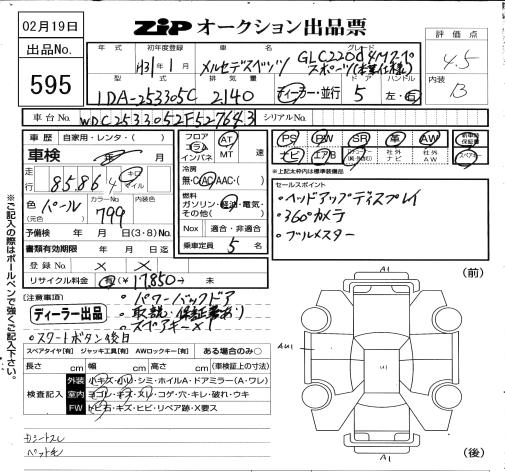 02月19日
ZIP オークション出品票
出品No.
595
評価点
4.5
内装
B
年式
初年度登録
車名
グレード
H31年1月
メルセデスベンツ
GLC220d4マチック
スポーツ(本革仕様)
型式
排気量
ドア
ハンドル
LDA-253305C
2140
ディーラー・並行
5
左・右
車台No.
WDC2533052F527643
シリアルNo.
車歴
自家用・レンタ・( )
車検
年 月
走行
85864
キロ
マイル
色
(元色)
パール
カラーNo.
799
内装色
予備検 年 月 日(3・8)No.
書類有効期限 年 月 日迄
登録No. × ×
リサイクル料金 有(¥ 17,850 )→ 未
フロア
フラム
インパネ
AT
MT
速
冷房
無・C・AC・AAC・( )
燃料
ガソリン・軽油・電気・
その他( )
Nox 適合・非適合
乗車定員 5 名
PS
PW
SR
革
AW
新車時保証書
ナビ
エアB
社外ナビ
社外AW
スペアキー
※上記太枠内は標準装備品
セールスポイント
・ヘッドアップディスプレイ
・360°カメラ
・ブルメスター
(注意事項)
ディーラー出品
・パワーバックドア
・取説・保証書あり
・スペアキー×1
・スタートボタン後日
スペアタイヤ[有] ジャッキ工具[有] AWロックキー[有] ある場合のみ○
長さ cm 幅 cm 高さ cm (車検証上の寸法)
検査記入
外装 小キズ・小凹・シミ・ホイルA・ドアミラー(A・ワレ)
室内 ヨゴレ・キズ・スレ・コゲ・穴・キレ・破れ・ウキ
FW トビ石・キズ・ヒビ・リペア跡・X要ス
※ご記入の際はボールペンで強くご記入下さい。
(前)
A1
AU1
U1
A1
(後)